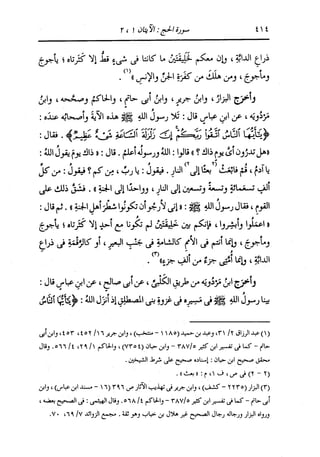 ٤١٤ سورة الحج : الآيتان ١ ، ٢
ذراعِ الدابَّةِ ، وإن معكم لخَلِيقَتَيْن ما كانتا فى شىءٍ قطُّ إلا كثَرتاه ؛ يأجوجَ
ومأجوجَ ، ومن هلَك من كفرةِ الجنِّ والإنسِ »(١) .
وأخرَج البزارُ ، وابنُ جريرٍ ، وابنُ أبى حاتمٍ ، والحاكمُ وصحَّحه ، وابنُ
مَرْدُويَه ، عن ابنِ عباسٍ قال : تلا رسولُ اللهِ ﷺ هذه الآيةَ وأصحابُه عندَه :
﴿يَٰٓأَيُّهَا ٱلنَّاسُ ٱتَّقُوا۟ رَبَّكُمْ إِنَّ زَلْزَلَةَ ٱلسَّاعَةِ شَىْءٌ عَظِيمٌ﴾ . فقال :
« هل تدرُون أىُّ يومٍ ذاك ؟ » قالوا : اللهُ ورسولُه أعلمُ . قال : « ذاك يومَ يقولُ اللهُ :
يا آدمُ ، قم فابعَثْ (٢بعثًا إلى٢) النارِ . فيقولُ : يا ربِّ ، مِن كم ؟ فيقولُ : من كلِّ
ألفٍ تسعَمائةٍ وتسعةً وتسعين إلى النارِ ، وواحدًا إلى الجنةِ » . فشقَّ ذلك على
القومِ ، فقال رسولُ اللهِ ﷺ : « إنى لأرجُو أن تكونُوا شطرَ أهلِ الجنةِ » . ثم قال :
« اعمَلوا وأبشِروا ، فإنكم بين خَلِيقتَيْن لم تكونا مع أحدٍ إلا كثَرتاه ؛ يأجوجَ
ومأجوجَ ، وإنما أنتم فى الأممِ كالشامةِ فى جَنْبِ البعيرِ ، أو كالرَّقْمَةِ فى ذراعِ
الدابَّةِ ، وإنما أُمَّتى جزءٌ من ألفِ جزءٍ »(٣) .
وأخرَج ابنُ مَرْدُويَه من طريقِ الكلبىِّ ، عن أبى صالحٍ ، عن ابنِ عباسٍ قال :
بينا رسولُ اللهِ ﷺ فى مسيرِه فى غزوةِ بنى المصطلقِ إذ أنزَل اللهُ : ﴿يَٰٓأَيُّهَا ٱلنَّاسُ
(١) عبد الرزاق ٢/ ٣١، وعبد بن حميد (١١٨٥ - منتخب) ، وابن جرير ١٦/ ٤٥٢، ٤٥٣، وابن أبى
حاتم - كما فى تفسير ابن كثير ٥/ ٣٨٧ - وابن حبان (٧٣٥٤) ، والحاكم ١/ ٢٩، ٤/ ٥٦٦. وقال
محقق صحيح ابن حبان : إسناده صحيح على شرط الشيخين .
(٢ - ٢) فى ص ، ف ١، م : « بعث » .
(٣) البزار (٢٢٣٥ - كشف) ، وابن جرير فى تهذيب الآثار ص ٣٩٦ (١٦ - مسند ابن عباس) ، وابن
أبى حاتم - كما فى تفسير ابن كثير ٥/ ٣٨٧ - والحاكم ٤/ ٥٦٨. وقال الهيثمى : فى الصحيح بعضه ،
ورواه البزار ورجاله رجال الصحيح غير هلال بن خباب وهو ثقة . مجمع الزوائد ٧/ ٦٩، ٧٠.